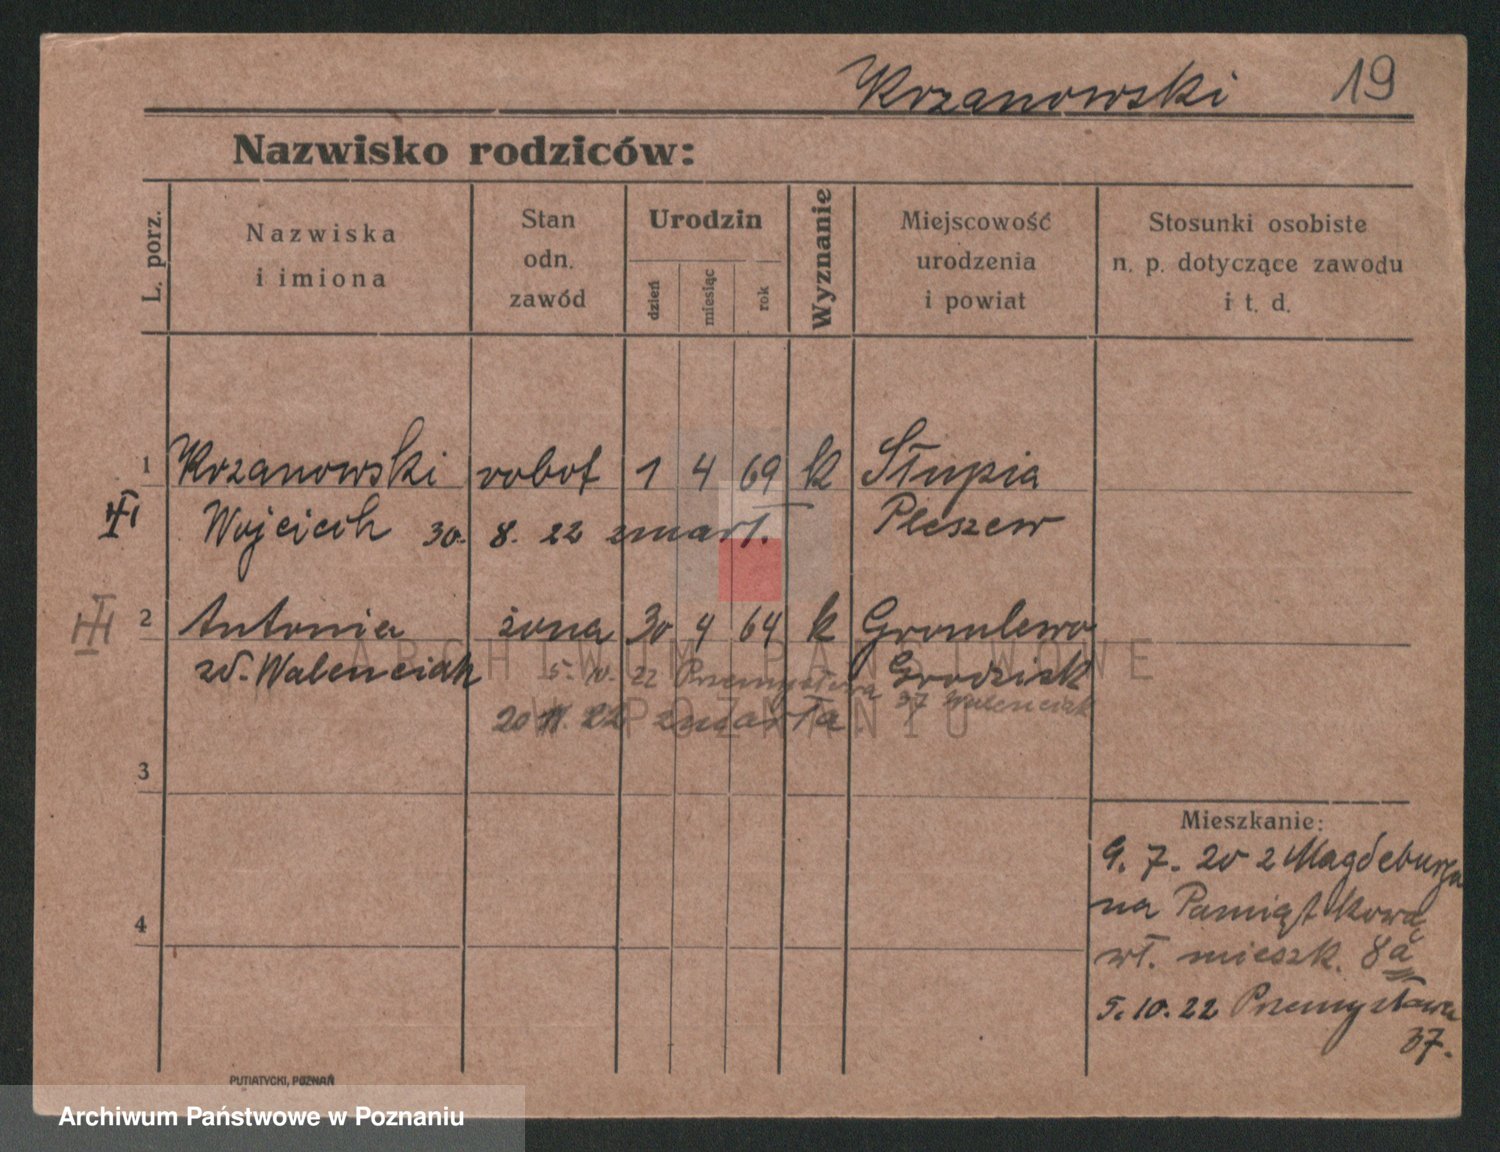 Krzanowski 19
Nazwisko rodziców:
L. porz.
Nazwiska
i imiona
Stan
odn.
zawód
Urodzin
dzień
miesiąc
rok
Wyznanie
Miejscowość
urodzenia
i powiat
Stosunki osobiste
n. p. dotyczące zawodu
i t. d.
1 Krzanowski robot 1 4 69 k Słupia
Wojciech 30. 8. 22 zmarł. Pleszew
2 Antonia żona 30 4 64 k Gromlewo
zd. Walenciak Grodzisk
5. 10. 22 Przemysłowa 37 Walenciak
20 22 zmarła.
ARCHIWUM PAŃSTWOWE
W POZNANIU
3
4
Mieszkanie:
9. 7. 20 z Magdeburga
na Pamiątkową
wł. mieszk. 8a
5. 10. 22 Przemysłowa
37.
PUTIATYCKI, POZNAŃ
Archiwum Państwowe w Poznaniu